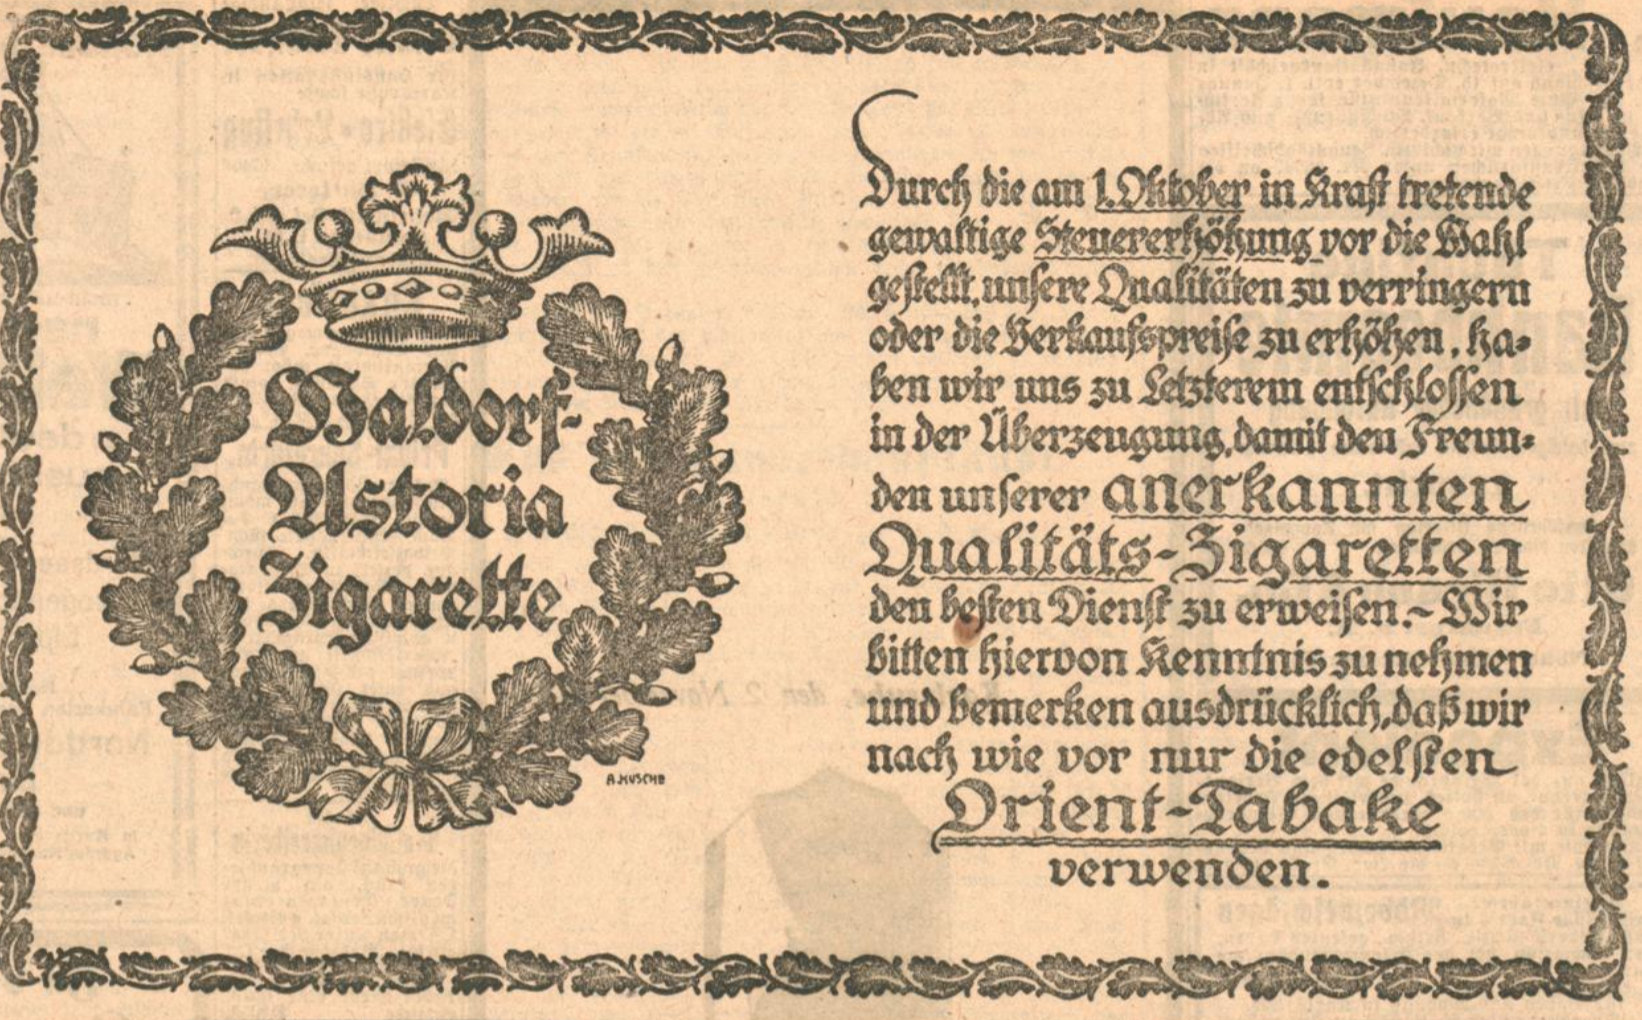 Waldorf-
Astoria
Zigarette
A.KUSCHE
Durch die am 1. Oktober in Kraft tretende
gewaltige Steuererhöhung vor die Wahl
gestellt, unsere Qualitäten zu verringern
oder die Verkaufspreise zu erhöhen, ha-
ben wir uns zu Letzterem entschlossen
in der Überzeugung, damit den Freun-
den unserer anerkannten
Qualitäts-Zigaretten
den besten Dienst zu erweisen. ~ Wir
bitten hiervon Kenntnis zu nehmen
und bemerken ausdrücklich, daß wir
nach wie vor nur die edelsten
Orient-Tabake
verwenden.